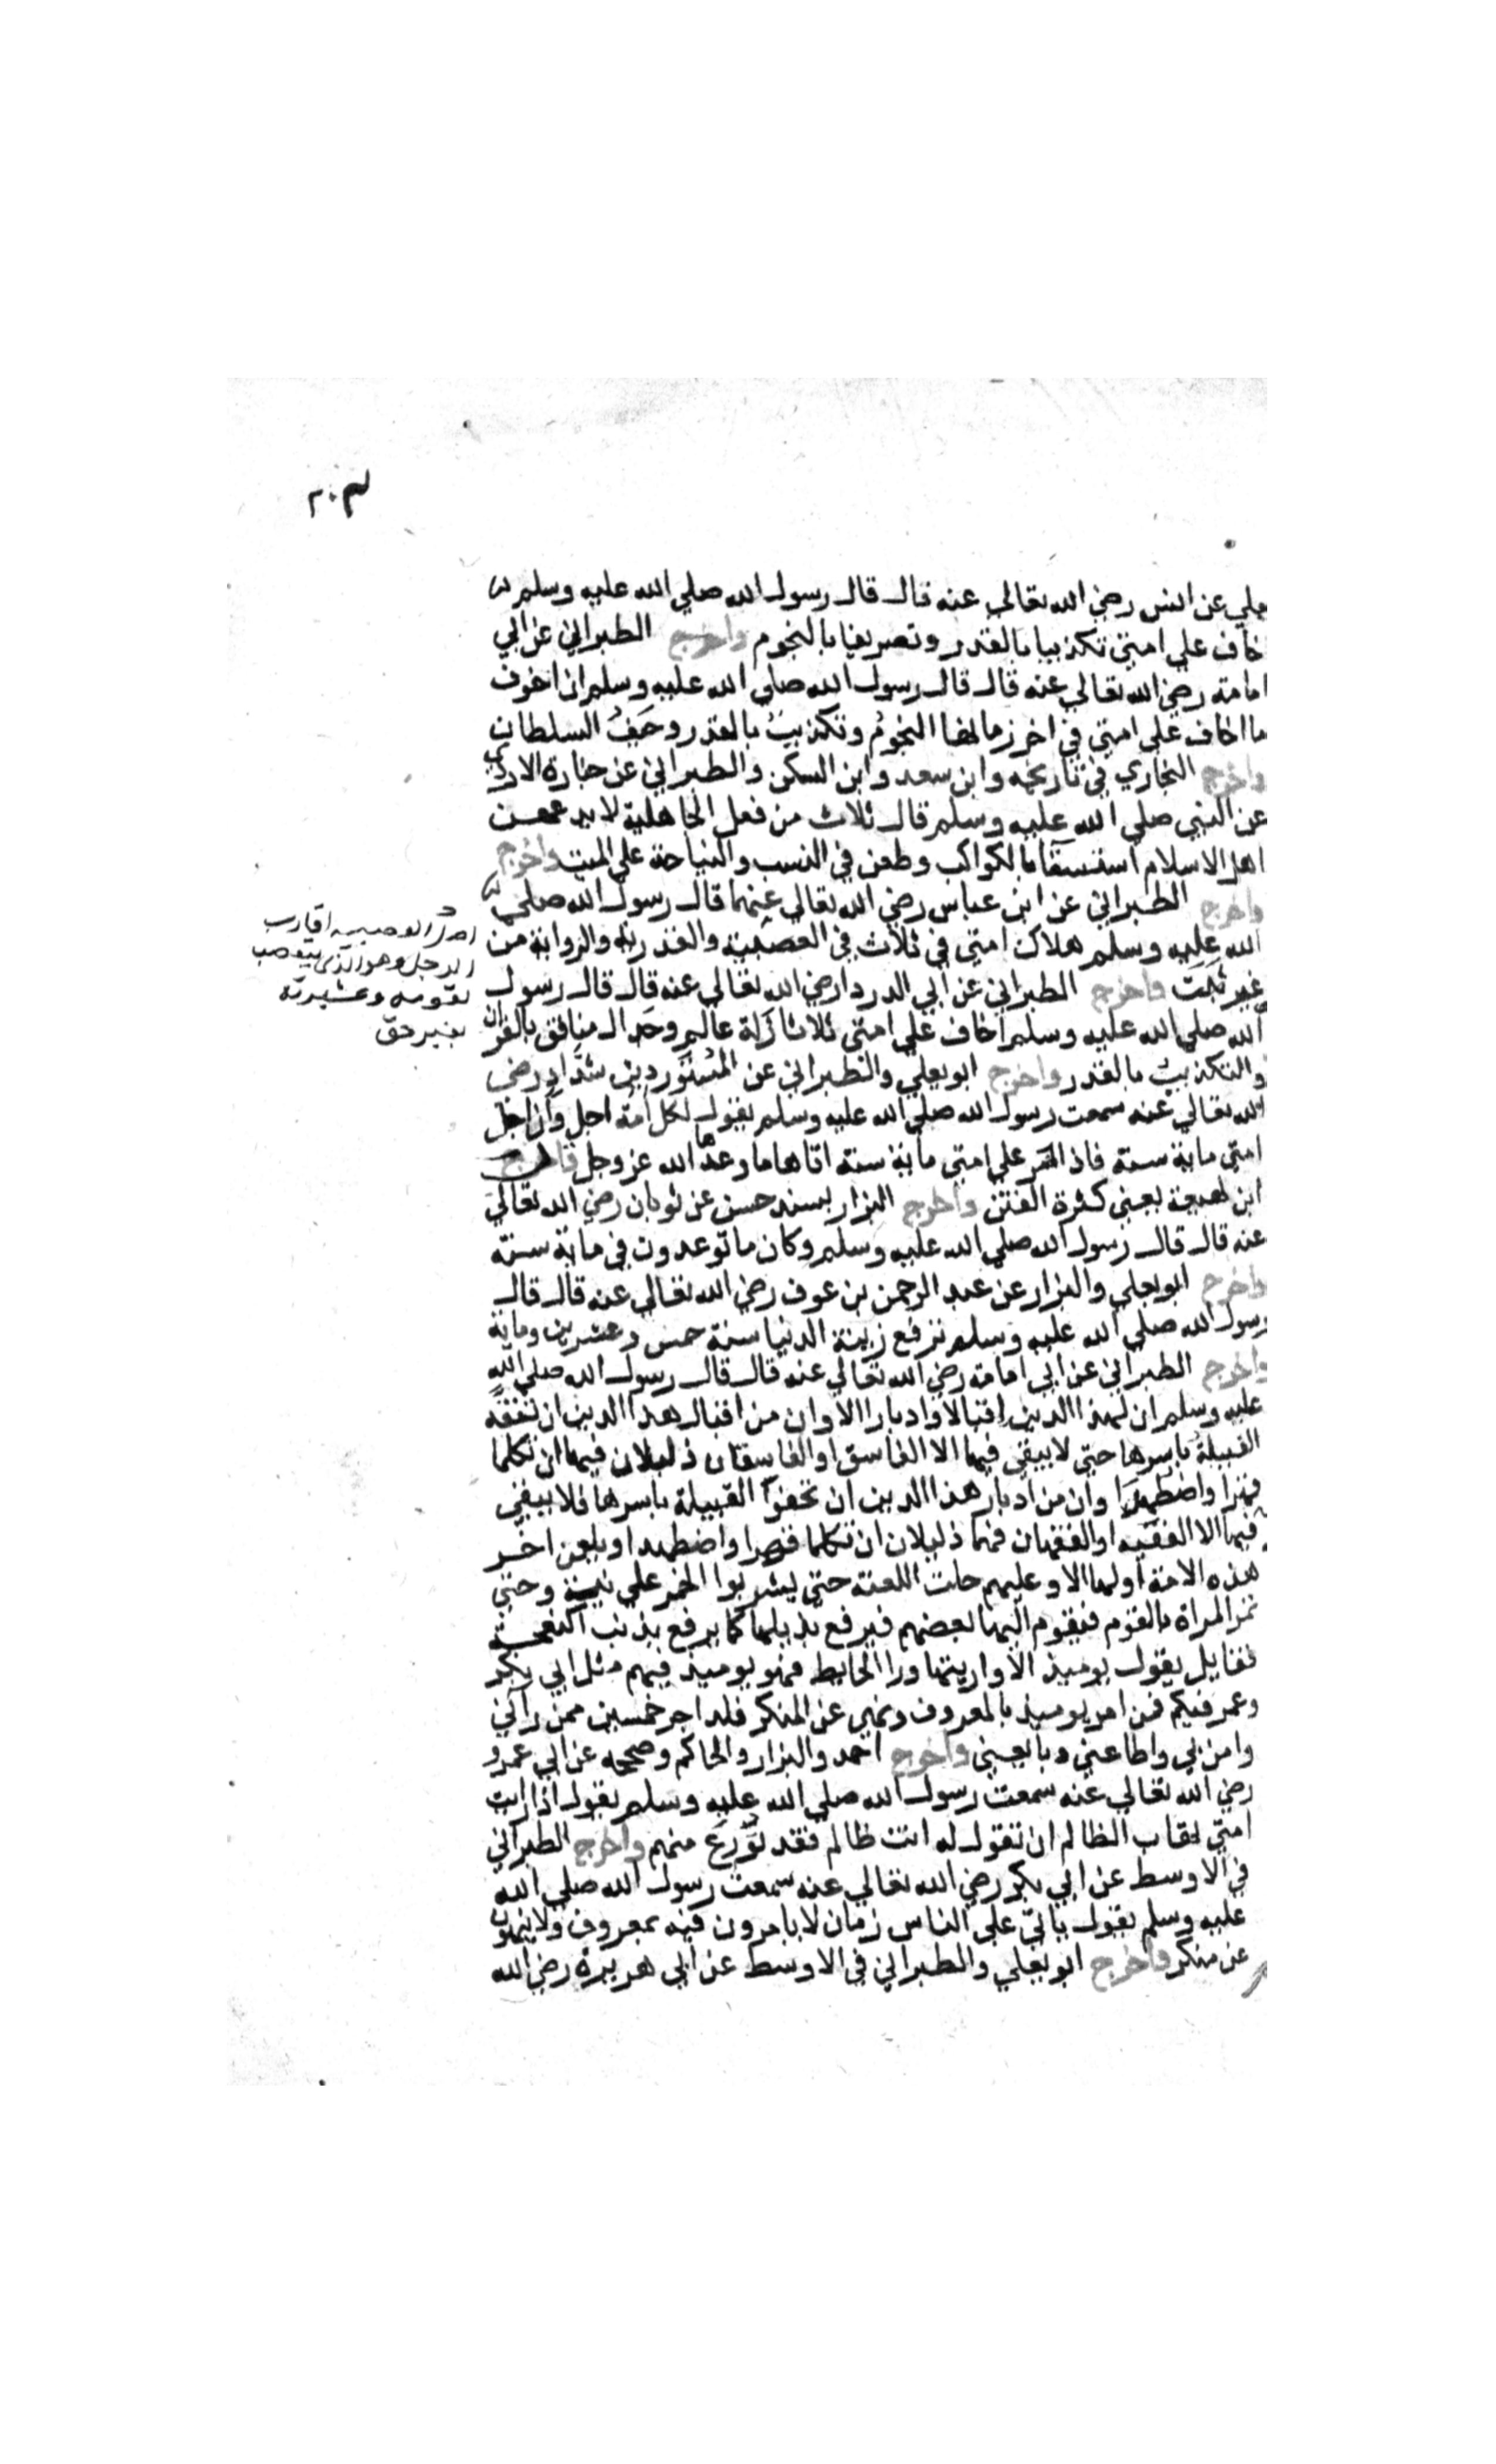 ٢٠٣
يعلي عن انس رضي الله تعالي عنه قال قال رسول الله صلي الله عليه وسلم
خاف علي امتي تكذيبا بالقدر وتصديقا بالنجوم واخرج الطبراني عن ابي
امامة رضي الله تعالي عنه قال قال رسول الله صلي الله عليه وسلم ان اخوف
ما اخاف علي امتي في اخر زمانها النجوم وتكذيب بالقدر وحيف السلطان
واخرج البخاري في تاريخه وابن سعد وابن السكن والطبراني عن جنادة الازدي
عن النبي صلي الله عليه وسلم قال ثلاث من فعل الجاهلية لا يدعهن
اهل الاسلام استسقا بالكواكب وطعن في النسب والنياحة علي الميت واخرج
واخرج الطبراني عن ابن عباس رضي الله تعالي عنهما قال رسول الله صلي
الله عليه وسلم هلاك امتي في ثلاث في العصبية والقدرية والرواية من
غير ثبت واخرج الطبراني عن ابي الدردا رضي الله تعالي عنه قال قال رسول
الله صلي الله عليه وسلم اخاف علي امتي ثلاثا زلة عالم وجدال منافق بالقران
والتكذيب بالقدر واخرج ابو يعلي والطبراني عن المستورد بن شداد رضي
الله تعالي عنه سمعت رسول الله صلي الله عليه وسلم يقول لكل امة اجل وان اجل
امتي ماية سنة فاذا مر علي امتي ماية سنة اتاها ما وعدها الله عز وجل قال
ابن لهيعة يعني كثرة الفتن واخرج البزار بسند حسن عن ثوبان رضي الله تعالي
عنه قال قال رسول الله صلي الله عليه وسلم وكان ما توعدون في ماية سنة
واخرج ابو يعلي والبزار عن عبد الرحمن بن عوف رضي الله تعالي عنه قال قال
رسول الله صلي الله عليه وسلم ترفع زينة الدنيا سنة خمس وعشرين وماية
واخرج الطبراني عن ابي امامة رضي الله تعالي عنه قال قال رسول الله صلي الله
عليه وسلم ان لهذا الدين اقبالا وادبارا الا وان من اقبال هذا الدين ان تفقه
القبيلة باسرها حتي لا يبقي فيها الا الفاسق او الفاسقان ذليلان فيها ان تكلما
قهرا واضطهدا وان من ادبار هذا الدين ان تجفوا القبيلة باسرها فلا يبقي
فيها الا الفقيه او الفقيهان فهما ذليلان ان تكلما قهرا واضطهدا ويلعن اخر
هذه الامة اولها الا وعليهم حلت اللعنة حتي يشربوا الخمر علانية وحتي
تمر المراة بالقوم فيقوم اليها بعضهم فيرفع بذيلها كما يرفع بذنب النعجة
فقايل يقول يوميذ الا واريتها ورا الحايط فهو يوميذ فيهم مثل ابي بكر
وعمر فيكم فمن امر يوميذ بالمعروف ونهي عن المنكر فله اجر خمسين ممن راني
وامن بي واطاعني وبايعني واخرج احمد والبزار والحاكم وصححه عن ابي عمرو
رضي الله تعالي عنه سمعت رسول الله صلي الله عليه وسلم يقول اذا رايت
امتي تهاب الظالم ان تقول له انت ظالم فقد تورع منهم واخرج الطبراني
في الاوسط عن ابي بكر رضي الله تعالي عنه سمعت رسول الله صلي الله
عليه وسلم يقول ياتي علي الناس زمان لا يامرون فيه بمعروف ولا ينهون
عن منكر واخرج ابو يعلي والطبراني في الاوسط عن ابي هريرة رضي الله
اصل العصبية اقارب
الرجل وهو الذي يتعصب
لقومه وعشيرته
بغير حق